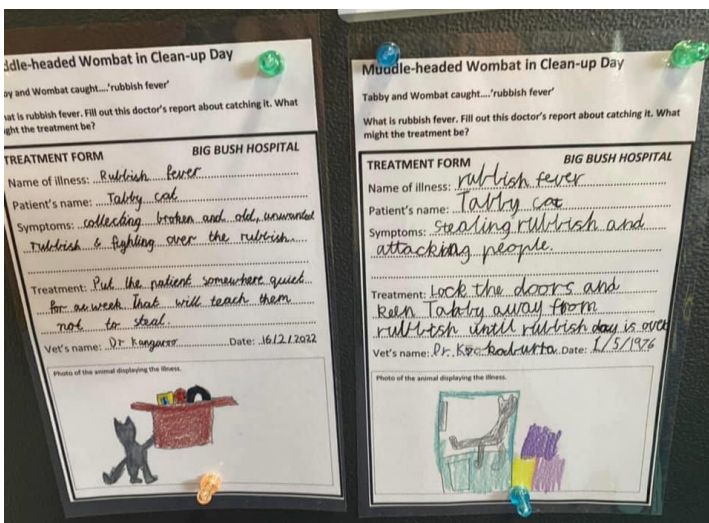 ddle-headed Wombat in Clean-up Day
by and Wombat caught....'rubbish fever'
hat is rubbish fever. Fill out this doctor's report about catching it. What
ght the treatment be?
TREATMENT FORM BIG BUSH HOSPITAL
Name of illness: Rubbish fever
Patient's name: Tabby cat
Symptoms: collecting broken and old, unwanted
rubbish & fighting over the rubbish.
Treatment: Put the patient somewhere quiet
for a week That will teach them
not to steal.
Vet's name: Dr Kangaroo Date: 16/2/2022
Photo of the animal displaying the illness.
Muddle-headed Wombat in Clean-up Day
Tabby and Wombat caught....'rubbish fever'
What is rubbish fever. Fill out this doctor's report about catching it. What
might the treatment be?
TREATMENT FORM BIG BUSH HOSPITAL
Name of illness: rubbish fever
Patient's name: Tabby cat
Symptoms: Stealing rubbish and
attacking people.
Treatment: Lock the doors and
keep Tabby away from
rubbish until rubbish day is over
Vet's name: Dr. Date: 1/5/1976
Photo of the animal displaying the illness.